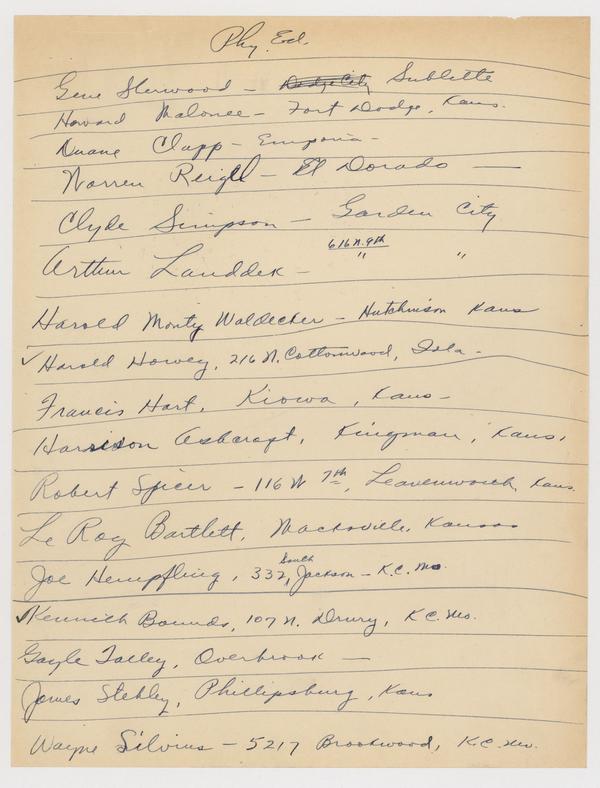 Phy. Ed.
Gene Sherwood - Dodge City Sublette
Howard Malone - Fort Dodge, Kans.
Duane Clapp - Emporia -
Warren Reigle - El Dorado -
Clyde Simpson - Garden City
616 N. 9th
Arthur Landdek - " "
Harold Monty Waldecker - Hutchinson Kans
✓ Harold Howey, 216 N. Cottonwood, Iola -
Francis Hart, Kiowa, Kans -
Harrison Ashcraft, Kingman, Kans,
Robert Spicer - 116 N 7th, Leavenworth, Kans.
Le Roy Bartlett, Macksville, Kansas
Joe Hempfling, 332 South Jackson - K.C. Mo.
✓ Kenneth Bounds, 107 N. Drury, K.C. Mo.
Gayle Talley, Overbrook -
James Stehley, Phillipsburg, Kans
Wayne Silvius - 5217 Brookwood, K.C. Mo.